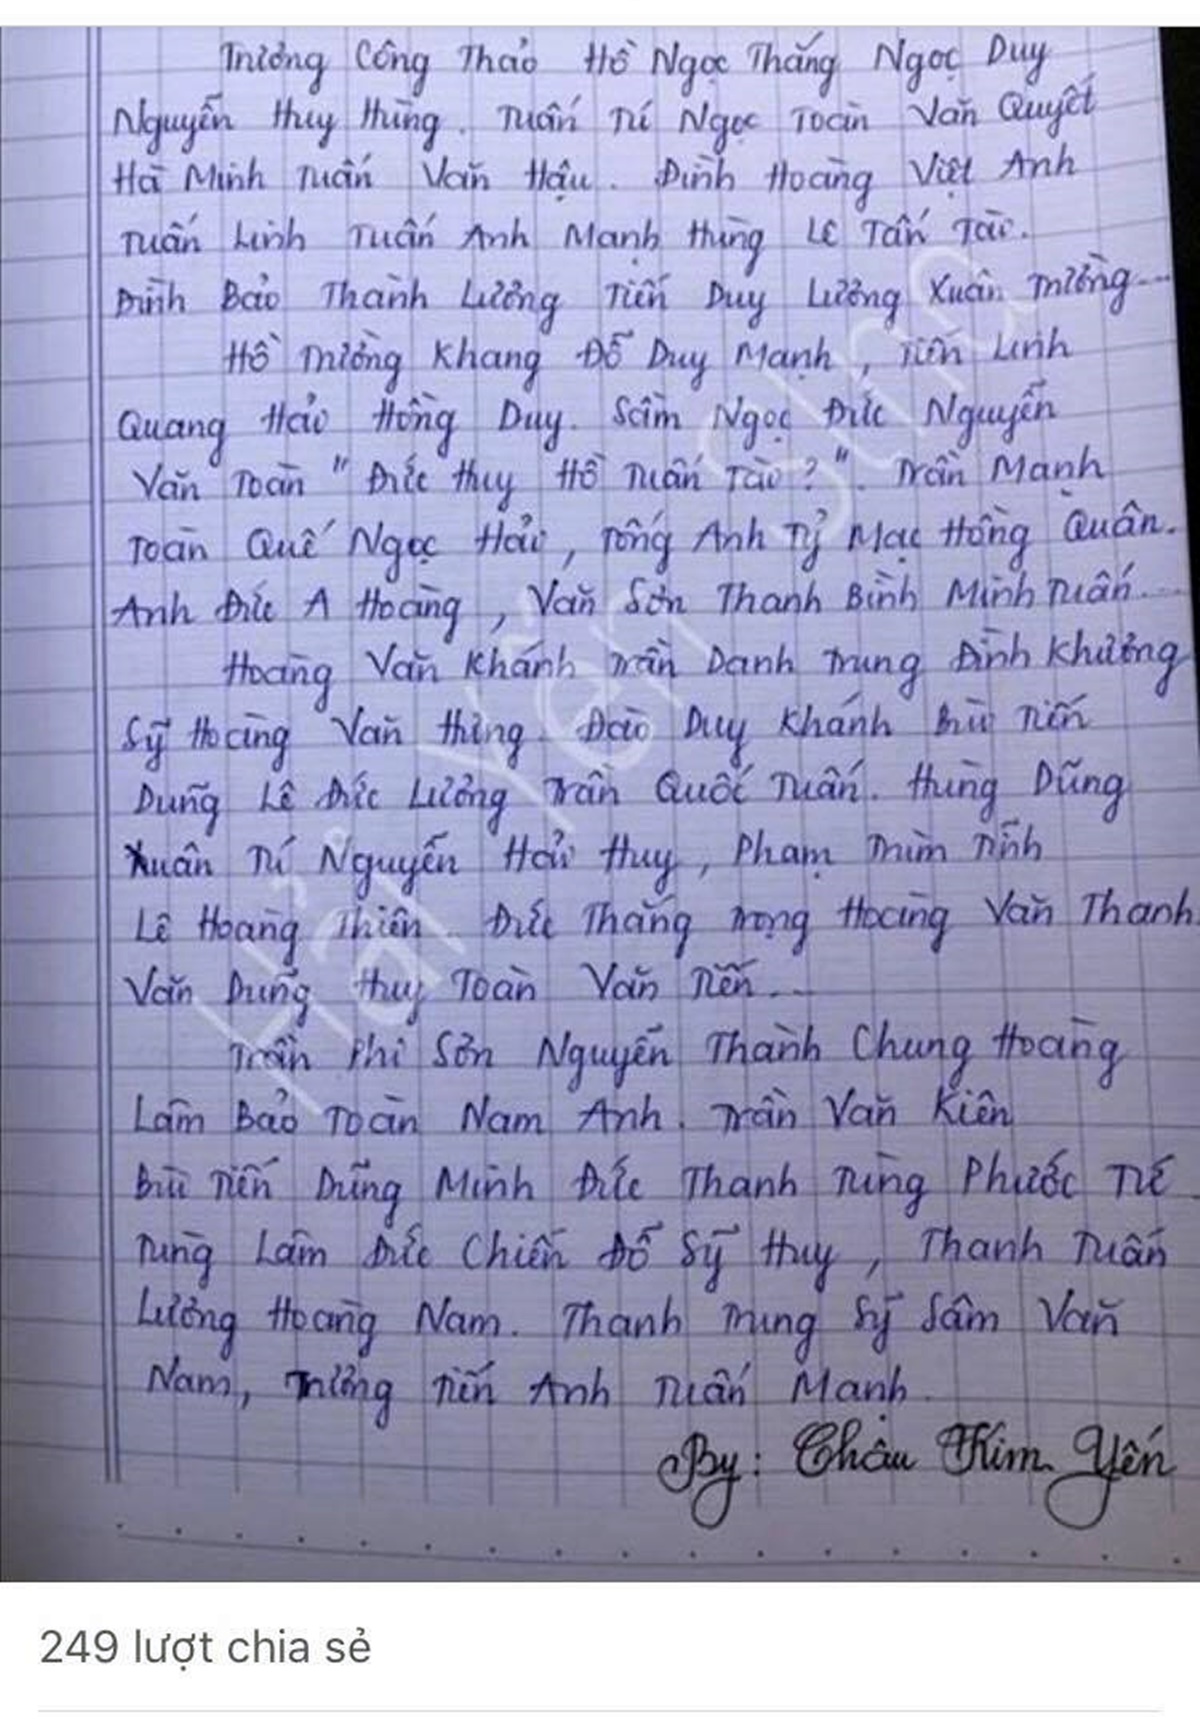 Trương Công Thảo Hồ Ngọc Thắng Ngọc Duy
Nguyễn Huy Hùng. Tuấn Tú Ngọc Toàn Văn Quyết
Hà Minh Tuấn Văn Hậu. Đình Hoàng Việt Anh
Tuấn Linh Tuấn Anh Mạnh Hùng Lê Tấn Tài.
Đình Bảo Thành Lương Tiến Duy Lương Xuân Trường...
Hồ Trường Khang Đỗ Duy Mạnh, Tiến Linh
Quang Hải Hồng Duy. Sầm Ngọc Đức Nguyễn
Văn Toàn "Đức Huy Hồ Tuấn Tài?". Trần Mạnh
Toàn Quế Ngọc Hải, Tống Anh Tỷ Mạc Hồng Quân.
Anh Đức A Hoàng, Văn Sơn Thanh Bình Minh Tuấn...
Hoàng Văn Khánh Trần Danh Trung Đình Khương
Sỹ Hoàng Văn Hùng. Đào Duy Khánh Bùi Tiến
Dụng Lê Đức Lương Trần Quốc Tuấn. Hùng Dũng
Xuân Tú Nguyễn Hải Huy, Phạm Trùm Tỉnh
Lê Hoàng Thiên. Đức Thắng Trọng Hoàng Văn Thanh
Văn Dũng Huy Toàn Văn Tiến...
Trần Phi Sơn Nguyễn Thành Chung Hoàng
Lâm Bảo Toàn Nam Anh. Trần Văn Kiên
Bùi Tiến Dũng Minh Đức Thanh Tùng Phước Tứ
Tùng Lâm Đức Chiến Đỗ Sỹ Huy, Thanh Tuấn
Lương Hoàng Nam. Thanh Trung Sỹ Sâm Văn
Nam, Trương Tiến Anh Tuấn Mạnh.
By: Châu Kim Yến
Hải Yến
249 lượt chia sẻ